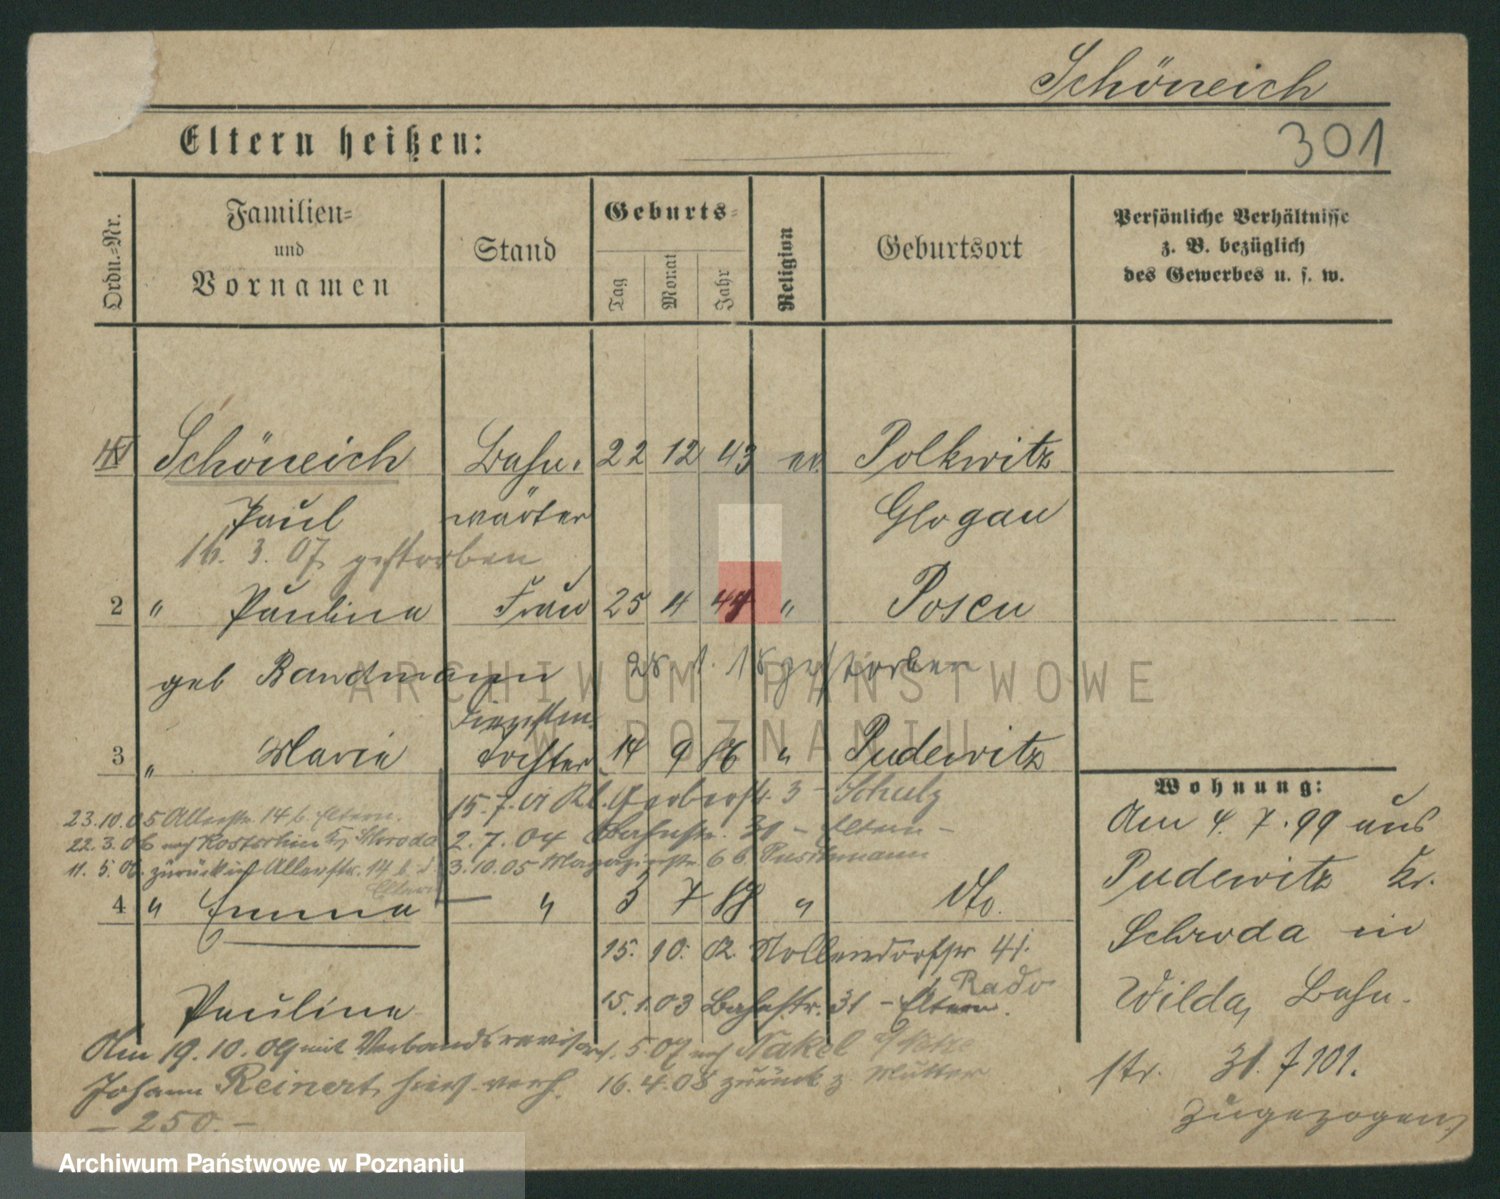 Schöneich
301
Eltern heißen:
Ordn.-Nr.
Familien-
und
Vornamen
Stand
Geburts-
Tag
Monat
Jahr
Religion
Geburtsort
Persönliche Verhältnisse
z. B. bezüglich
des Gewerbes u. s. w.
Schöneich Bahn- 22 12 43 ev. Polkwitz
Paul wärter Glogau
16. 3. 07 gestorben
2 " Paulina Frau 25 4 " Posen
geb Bandmann gestorben
3 " Marie tochter 14 9 86 " Pudewitz
15.7.01 Kl. Gerberstr. 3 - Schulz
23.10.05 Allerstr. 14 b. Eltern.
2.7.04 Bahnstr. 31 - Eltern -
22.3.06 nach Kostschin Kr. Schroda
3.10.05 Magazinstr. 6 b Puschmann
11. 5. 06. zurück Allerstr. 14 b.
Eltern
4 " Emma — " 5 7 88 " dto.
15. 10. 02. Nollendorfstr 41.
Rado
Paulina
15.1.03 Bahnstr. 31 - Eltern.
Am 19.10.09 mit Verbandsrevisor
5.07 nach Nakel
Johann Reinert, hier verh.
16.4.08 zurück z Mutter
- 250. -
Wohnung:
Am 4. 7. 99 aus
Pudewitz Kr.
Schroda in
Wilda, Bahn-
str. 31.
zugezogen
ARCHIWUM PAŃSTWOWE
W POZNANIU
Archiwum Państwowe w Poznaniu